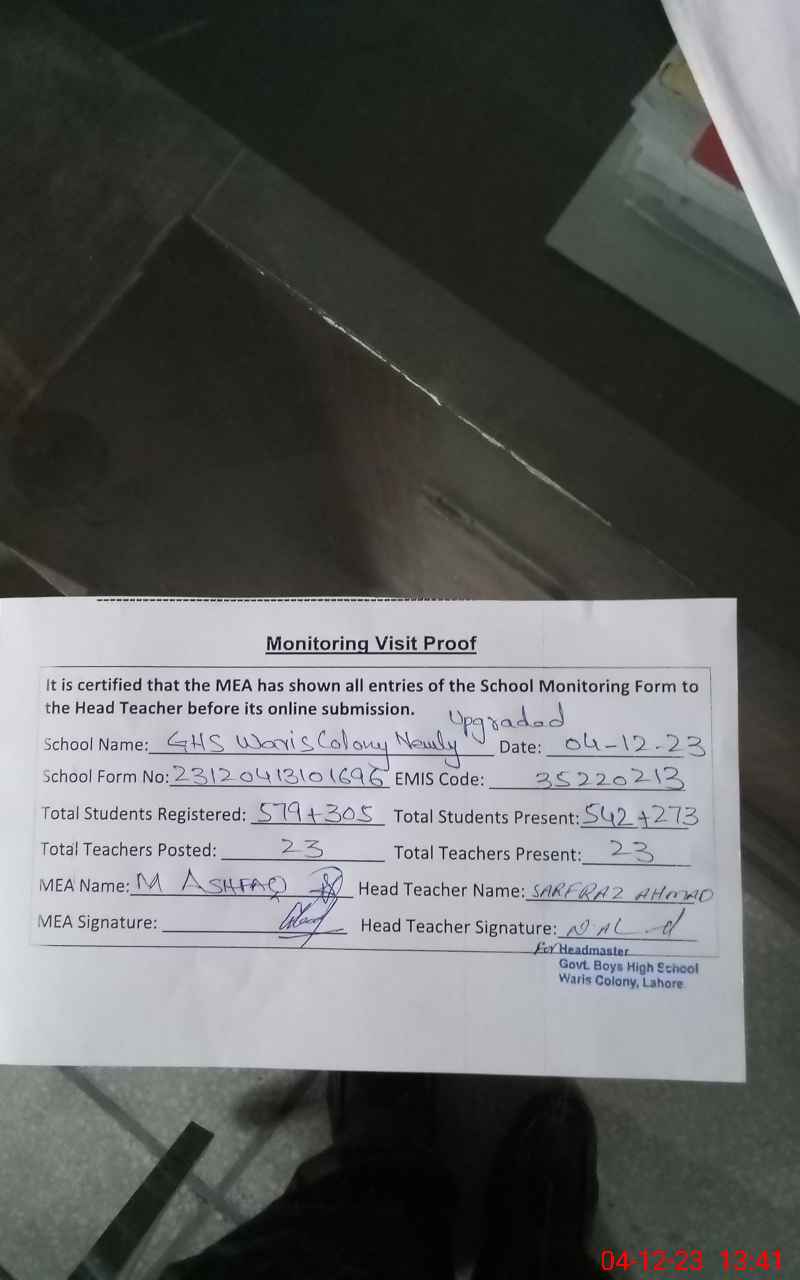 Monitoring Visit Proof
It is certified that the MEA has shown all entries of the School Monitoring Form to
the Head Teacher before its online submission.
Upgraded
School Name: GHS Waris Colony Newly Date: 04-12-23
School Form No: 23120413101696 EMIS Code: 35220213
Total Students Registered: 579+305 Total Students Present: 542+273
Total Teachers Posted: 23 Total Teachers Present: 23
MEA Name: M ASHFAQ Head Teacher Name: SARFRAZ AHMAD
MEA Signature: Head Teacher Signature:
For Headmaster
Govt. Boys High School
Waris Colony, Lahore.
04-12-23 13:41